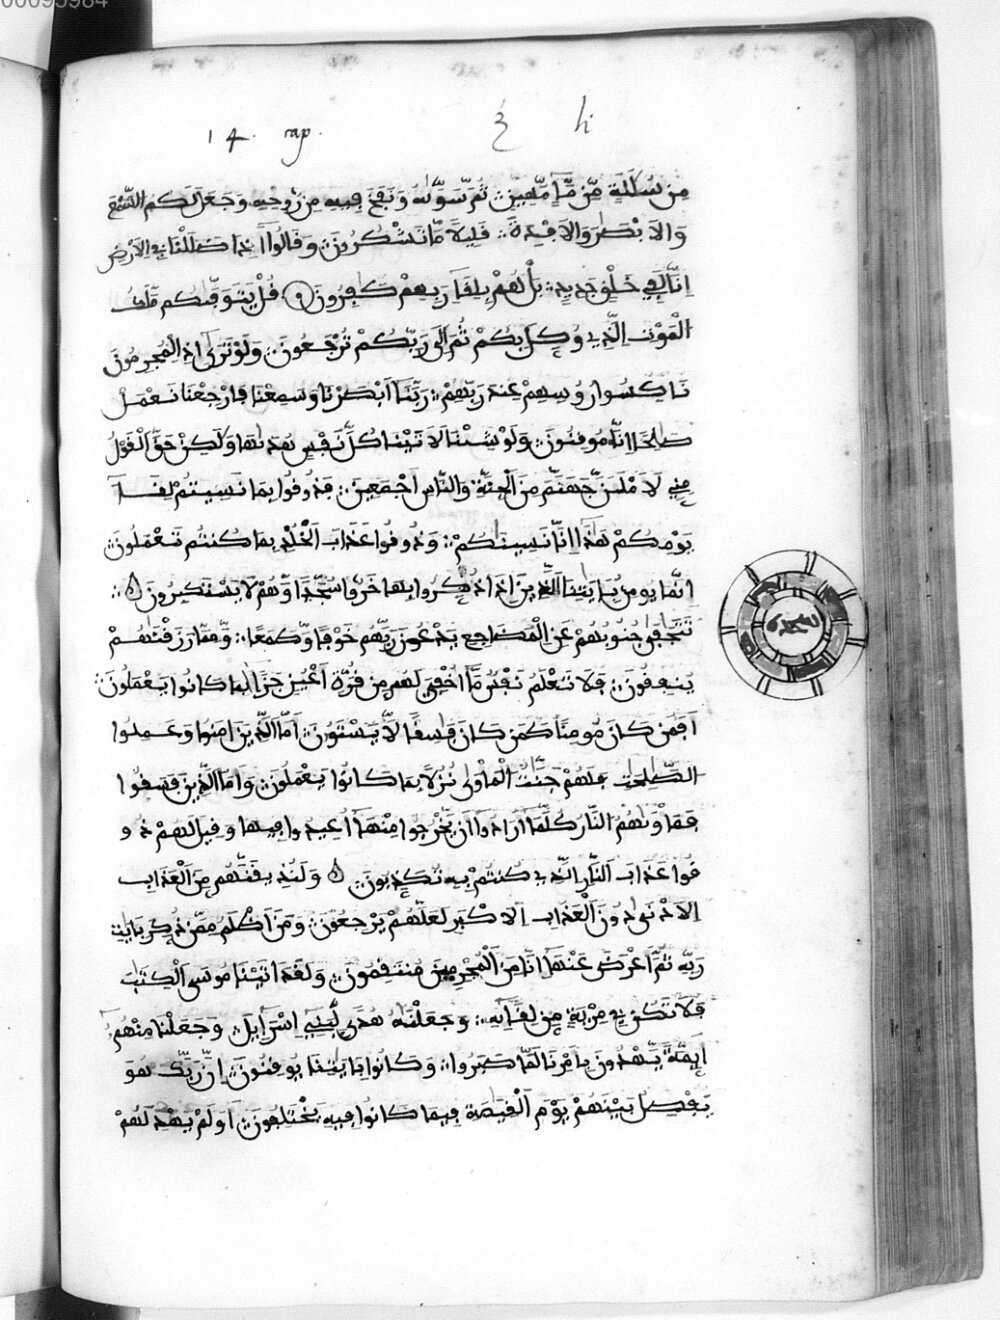 00095984
14. rap. hi
مِن سُلَٰلَةٍ مِّن مَّآءٍ مَّهِينٍ ثُمَّ سَوَّىٰهُ وَنَفَخَ فِيهِ مِن رُّوحِهِ وَجَعَلَ لَكُمُ السَّمْعَ
وَالاَبْصَٰرَ وَالاَفْـِٕدَةَ قَلِيلًا مَّا تَشْكُرُونَ وَقَالُوٓاْ أَ.ذَا ضَلَلْنَا فِي الاَرْضِ
إِنَّا لَفِي خَلْقٍ جَدِيدٍ بَلْ هُم بِلِقَآءِ رَبِّهِمْ كَٰفِرُونَ قُلْ يَتَوَفَّىٰكُم مَّلَكُ
الْمَوْتِ الَّذِي وُكِّلَ بِكُمْ ثُمَّ إِلَىٰ رَبِّكُمْ تُرْجَعُونَ وَلَوْ تَرَىٰ إِذِ الْمُجْرِمُونَ
نَاكِسُواْ رُءُوسِهِمْ عِندَ رَبِّهِمْ رَبَّنَآ أَبْصَرْنَا وَسَمِعْنَا فَارْجِعْنَا نَعْمَلْ
صَٰلِحًا إِنَّا مُوقِنُونَ وَلَوْ شِئْنَا لَأَتَيْنَا كُلَّ نَفْسٍ هُدَىٰهَا وَلَٰكِنْ حَقَّ الْقَوْلُ
مِنِّي لَأَمْلَأَنَّ جَهَنَّمَ مِنَ الْجِنَّةِ وَالنَّاسِ أَجْمَعِينَ فَذُوقُواْ بِمَا نَسِيتُمْ لِقَآءَ
يَوْمِكُمْ هَٰذَآ إِنَّا نَسِينَٰكُمْ وَذُوقُواْ عَذَابَ الْخُلْدِ بِمَا كُنتُمْ تَعْمَلُونَ
إِنَّمَا يُومِنُ بِـَٔايَٰتِنَا الَّذِينَ إِذَا ذُكِّرُواْ بِهَا خَرُّواْ سُجَّدًا وَهُمْ لَا يَسْتَكْبِرُونَ
تَتَجَافَىٰ جُنُوبُهُمْ عَنِ الْمَضَاجِعِ يَدْعُونَ رَبَّهُمْ خَوْفًا وَطَمَعًا وَمِمَّا رَزَقْنَٰهُمْ
يُنفِقُونَ فَلَا تَعْلَمُ نَفْسٌ مَّآ أُخْفِيَ لَهُم مِّن قُرَّةِ أَعْيُنٍ جَزَآءً بِمَا كَانُواْ يَعْمَلُونَ
أَفَمَن كَانَ مُومِنًا كَمَن كَانَ فَاسِقًا لَّا يَسْتَوُونَ أَمَّا الَّذِينَ ءَامَنُواْ وَعَمِلُواْ
الصَّٰلِحَٰتِ فَلَهُمْ جَنَّٰتُ الْمَأْوَىٰ نُزُلًا بِمَا كَانُواْ يَعْمَلُونَ وَأَمَّا الَّذِينَ فَسَقُواْ
فَمَأْوَىٰهُمُ النَّارُ كُلَّمَآ أَرَادُوٓاْ أَن يَخْرُجُواْ مِنْهَآ أُعِيدُواْ فِيهَا وَقِيلَ لَهُمْ ذُو
قُواْ عَذَابَ النَّارِ الَّذِي كُنتُم بِهِ تُكَذِّبُونَ وَلَنُذِيقَنَّهُم مِّنَ الْعَذَابِ
الاَدْنَىٰ دُونَ الْعَذَابِ الاَكْبَرِ لَعَلَّهُمْ يَرْجِعُونَ وَمَنَ اَظْلَمُ مِمَّن ذُكِّرَ بِـَٔايَٰتِ
رَبِّهِ ثُمَّ أَعْرَضَ عَنْهَآ إِنَّا مِنَ الْمُجْرِمِينَ مُنتَقِمُونَ وَلَقَدَ اٰتَيْنَا مُوسَى الْكِتَٰبَ
فَلَا تَكُن فِي مِرْيَةٍ مِّن لِّقَآئِهِ وَجَعَلْنَٰهُ هُدًى لِّبَنِي إِسْرَآءِيلَ وَجَعَلْنَا مِنْهُمُ
أَيِمَّةً يَهْدُونَ بِأَمْرِنَا لَمَّا صَبَرُواْ وَكَانُواْ بِـَٔايَٰتِنَا يُوقِنُونَ إِنَّ رَبَّكَ هُوَ
يَفْصِلُ بَيْنَهُمْ يَوْمَ الْقِيَٰمَةِ فِيمَا كَانُواْ فِيهِ يَخْتَلِفُونَ أَوَلَمْ يَهْدِ لَهُمْ
سجدة